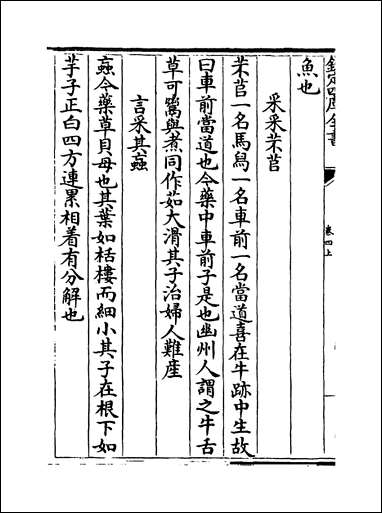 欽定四庫全書
卷四上
魚也
采采芣苢
芣苢一名馬舄一名車前一名當道喜在牛跡中生故
曰車前當道也今藥中車前子是也幽州人謂之牛舌
草可鬻與煮同作茹大滑其子治婦人難產
言采其蝱
蝱今藥草貝母也其葉如栝樓而細小其子在根下如
芋子正白四方連累相着有分解也